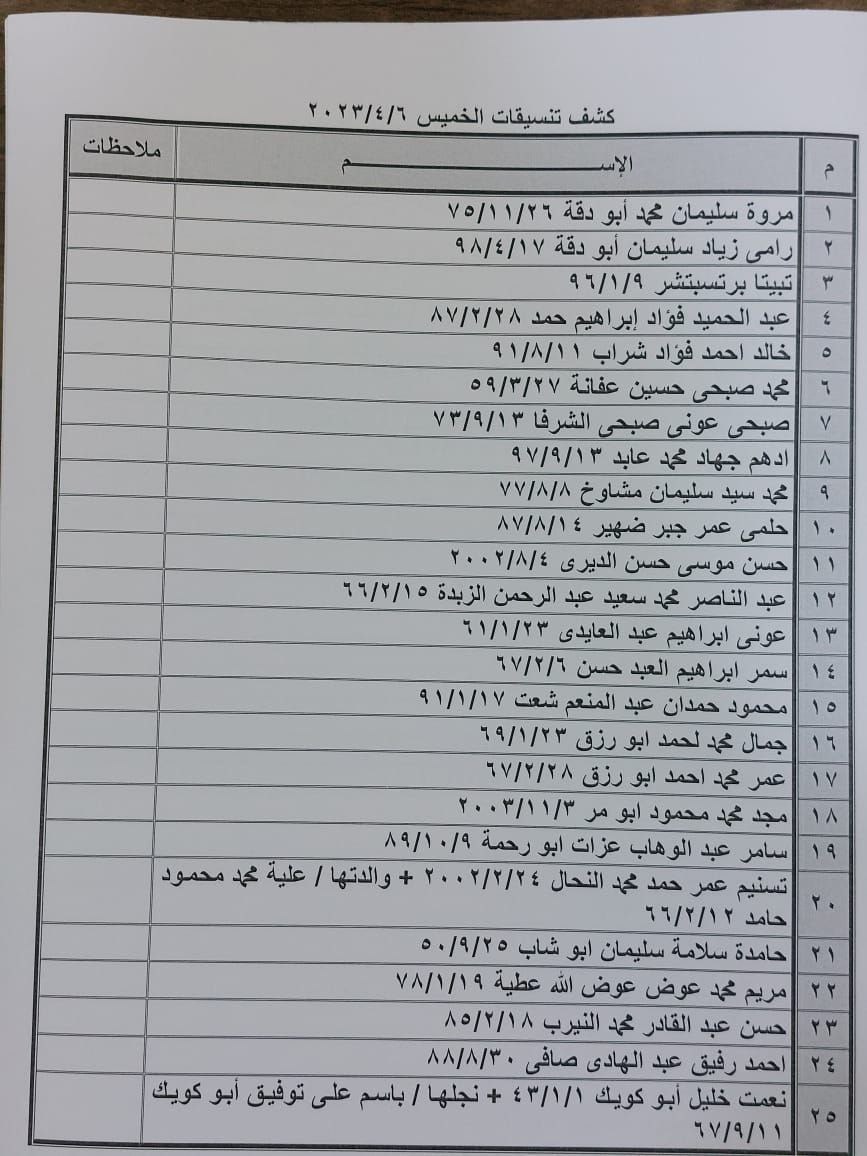 كشف تنسيقات الخميس ٢٠٢٣/٤/٦
م الإســـــــــــم ملاحظات
١ مروة سليمان محمد أبو دقة ٧٥/١١/٢٦
٢ رامى زياد سليمان أبو دقة ٩٨/٤/١٧
٣ تبيتا برتسبتشر ٩٦/١/٩
٤ عبد الحميد فؤاد إبراهيم حمد ٨٧/٢/٢٨
٥ خالد احمد فؤاد شراب ٩١/٨/١١
٦ محمد صبحى حسين عفانة ٥٩/٣/٢٧
٧ صبحى عونى صبحى الشرفا ٧٣/٩/١٣
٨ ادهم جهاد محمد عابد ٩٧/٩/١٣
٩ محمد سيد سليمان مشاوخ ٧٧/٨/٨
١٠ حلمى عمر جبر ضهير ٨٧/٨/١٤
١١ حسن موسى حسن الديرى ٢٠٠٢/٨/٤
١٢ عبد الناصر محمد سعيد عبد الرحمن الزبدة ٦٦/٢/١٥
١٣ عونى ابراهيم عبد العايدى ٦١/١/٢٣
١٤ سمر ابراهيم العبد حسن ٦٧/٢/٦
١٥ محمود حمدان عبد المنعم شعت ٩١/١/١٧
١٦ جمال محمد لحمد ابو رزق ٦٩/١/٢٣
١٧ عمر محمد احمد ابو رزق ٦٧/٢/٢٨
١٨ مجد محمد محمود ابو مر ٢٠٠٣/١١/٣
١٩ سامر عبد الوهاب عزات ابو رحمة ٨٩/١٠/٩
٢٠ تسنيم عمر حمد محمد النحال ٢٠٠٢/٢/٢٤ + والدتها / علية محمد محمود
حامد ٦٦/٢/١٢
٢١ حامدة سلامة سليمان ابو شاب ٥٠/٩/٢٥
٢٢ مريم محمد عوض عوض الله عطية ٧٨/١/١٩
٢٣ حسن عبد القادر محمد النيرب ٨٥/٢/١٨
٢٤ احمد رفيق عبد الهادى صافى ٨٨/٨/٣٠
٢٥ نعمت خليل أبو كويك ٤٣/١/١ + نجلها / باسم على توفيق أبو كويك
٦٧/٩/١١